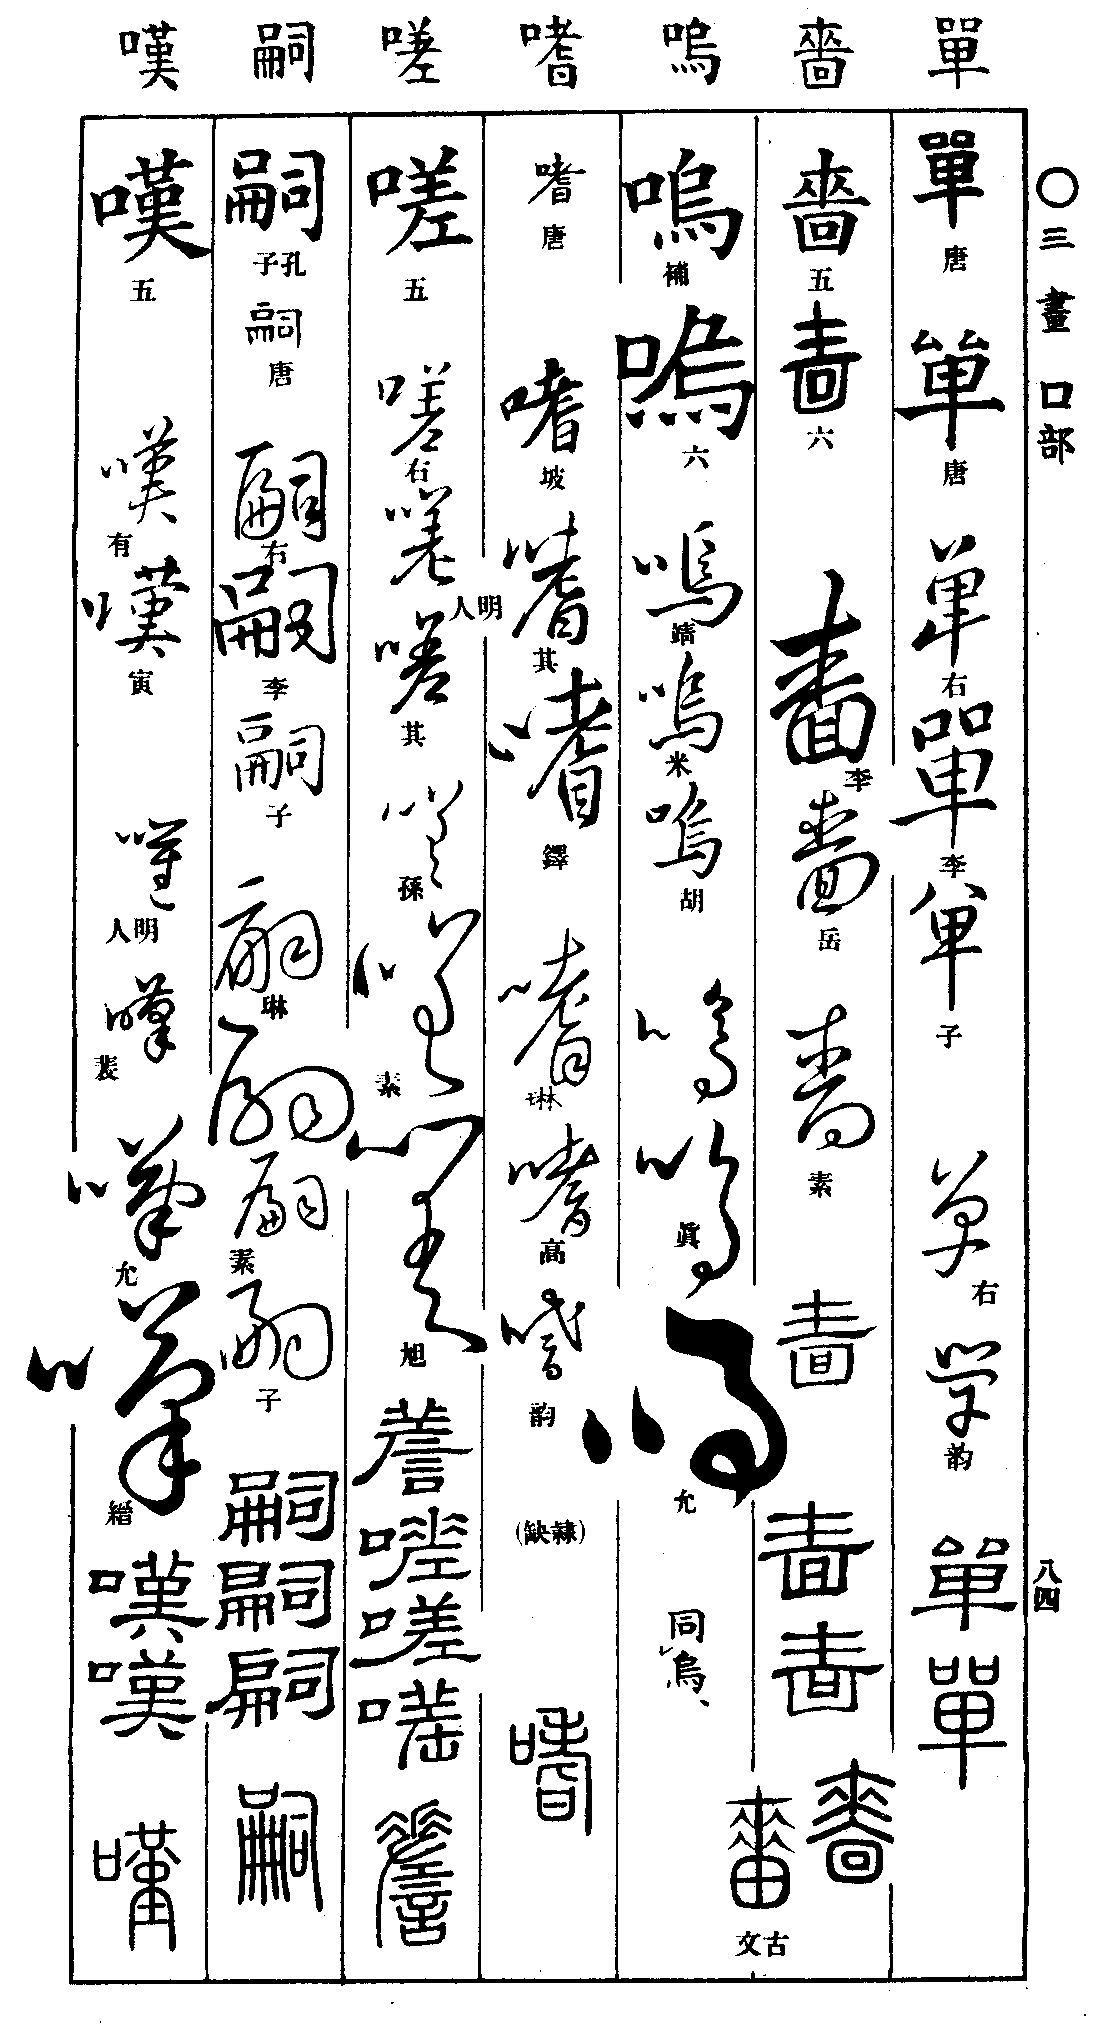 ○三畫 口部
八四
單 嗇 嗚 嗜 嗟 嗣 嘆
單 唐 單 唐 單 右 單 李 單 子 單 右 單 韵 單 單
嗇 五 嗇 六 嗇 李 嗇 岳 嗇 素 嗇 嗇 嗇 嗇 嗇 古文
嗚 補 嗚 六 嗚 嗚 米 嗚 胡 嗚 嗚 眞 嗚 允 同烏、
嗜 唐 嗜 坡 嗜 其 嗜 鐸 嗜 琳 嗜 高 嗜 韵 (隸缺) 嗜
嗟 五 嗟 右 嗟 明人 嗟 其 嗟 孫 嗟 素 嗟 旭 嗟 嗟 嗟 嗟
嗣 孔子 嗣 唐 嗣 右 嗣 李 嗣 子 嗣 琳 嗣 嗣 素 嗣 子 嗣 嗣 嗣 嗣
嘆 五 嘆 有 嘆 寅 嘆 明人 嘆 裴 嘆 允 嘆 縉 嘆 嘆 嘆